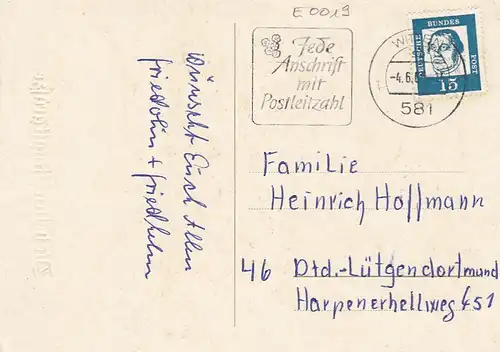 E0019
Jede
Anschrift
mit
Postleitzahl
-4.6.6
581
DEUTSCHE
BUNDES
POST
15
wünscht Euch Allen
Friedolin + Friedhelm
Familie
Heinrich Hoffmann
46 Dtd.-Lütgendortmund
Harpenerhellweg 451